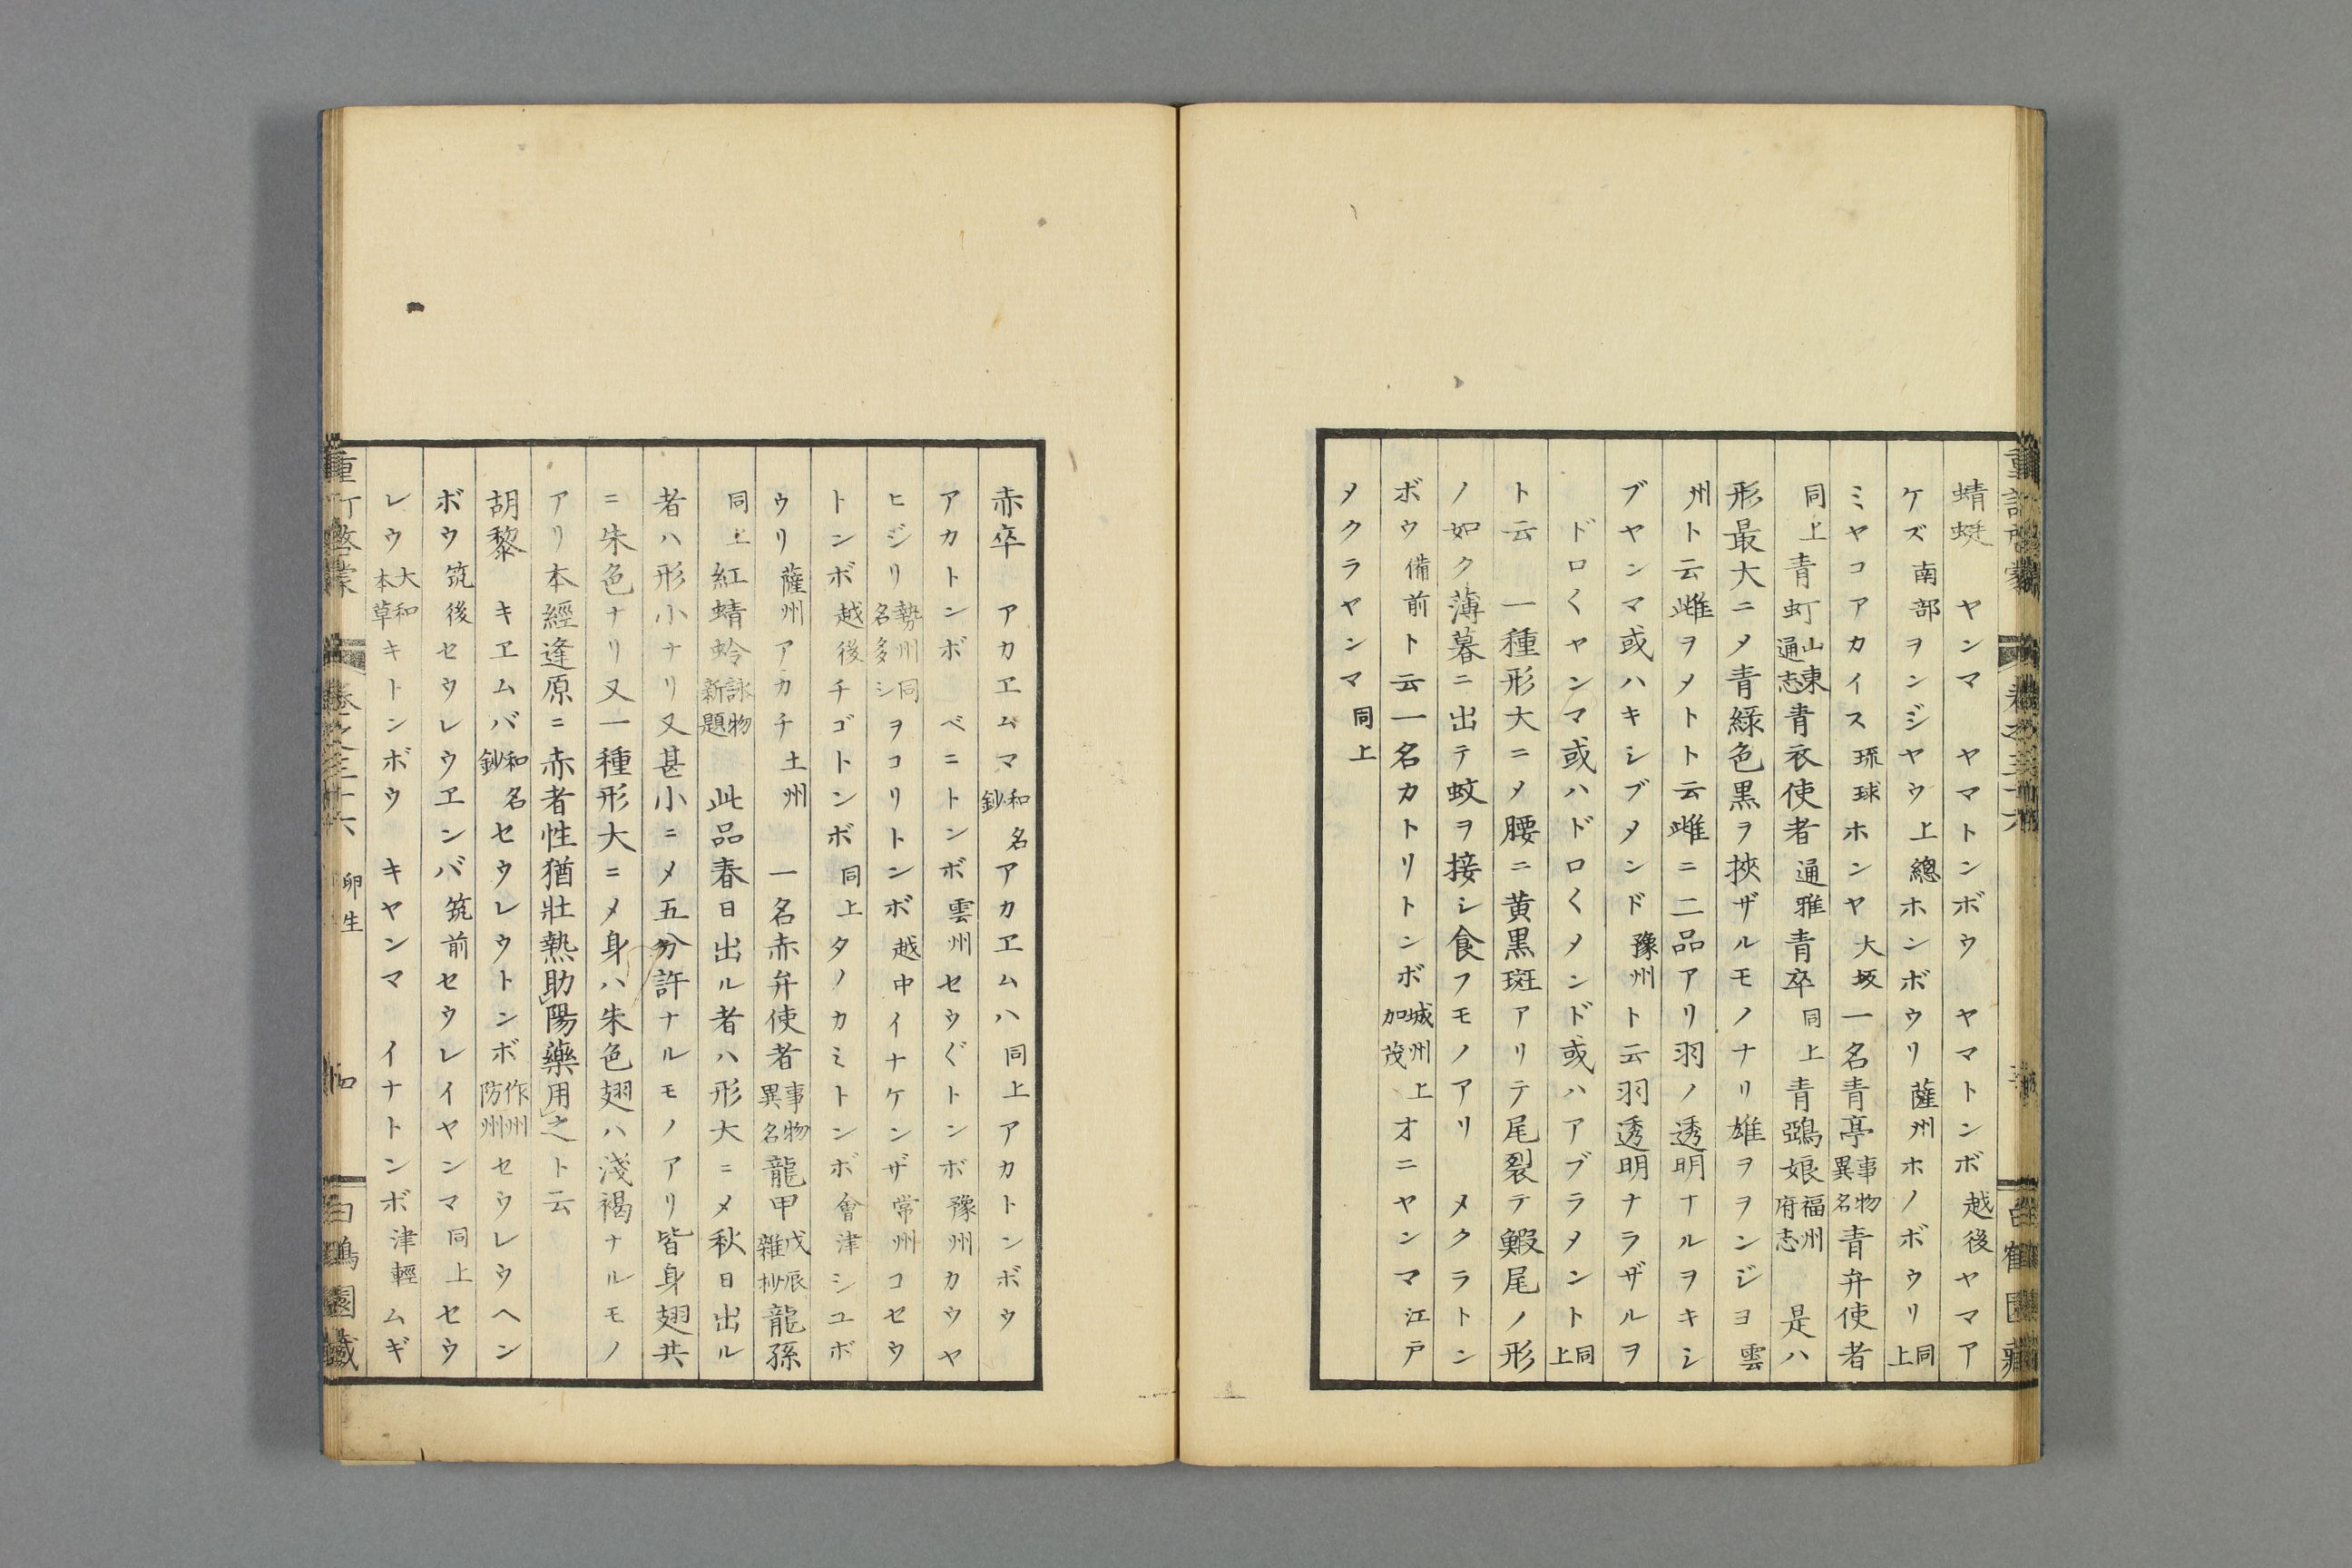 蜻蜓　ヤンマ　ヤマトンボウ　ヤマトンボ越後ヤマア
ケズ南部ヲンジヤウ上總ホンボウリ薩州ホノボウリ同上
ミヤコアカイス琉球ホンヤ大坂一名青亭事物異名青弁使者
同上青虰山東通志青衣使者通雅青卒同上青鵶娘福州府志　是ハ
形最大ニメ青緑色黒ヲ挾ザルモノナリ雄ヲヲンジヨ雲
州ト云雌ヲメトト云雌ニ二品アリ羽ノ透明ナルヲキシ
ブヤンマ或ハキシブメンド豫州ト云羽透明ナラザルヲ
ドロ〱ヤンマ或ハドロ〱メンド或ハアブラメント同上
ト云　一種形大ニメ腰ニ黄黒斑アリテ尾裂テ鰕尾ノ形
ノ如ク薄暮ニ出テ蚊ヲ接シ食フモノアリ　メクラトン
ボウ備前ト云一名カトリトンボ城州上加茂オニヤンマ江戸
メクラヤンマ同上
赤卒　アカヱムマ和名鈔アカヱムハ同上アカトンボウ
アカトンボ　ベニトンボ雲州セウ〲トンボ豫州カウヤ
ヒジリ勢州同名多シヲコリトンボ越中イナケンザ常州コセウ
トンボ越後チゴトンボ同上タノカミトンボ會津シユボ
ウリ薩州アカチ土州　一名赤弁使者事物異名龍甲戊辰雜抄龍孫
同上紅蜻蛉詠物新題　此品春日出ル者ハ形大ニメ秋日出ル
者ハ形小ナリ又甚小ニメ五分許ナルモノアリ皆身翅共
ニ朱色ナリ又一種形大ニメ身ハ朱色翅ハ淺褐ナルモノ
アリ本經逢原ニ赤者性猶壯熱助陽藥用之ト云
胡黎　キヱムバ和名鈔セウレウトンボ作州防州セウレウヘン
ボウ筑後セウレウヱンバ筑前セウレイヤンマ同上セウ
レウ大和本草キトンボウ　キヤンマ　イナトンボ津輕ムギ
卵生